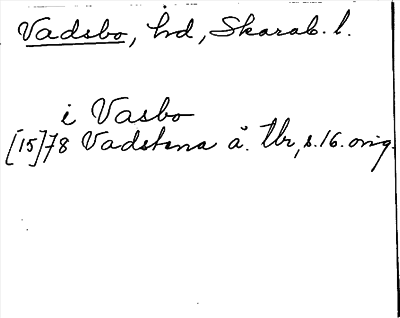 Vadsbo, hd, Skarab. l.
i Vasbo
[15]78 Vadstena å. tbr, s. 16. orig.